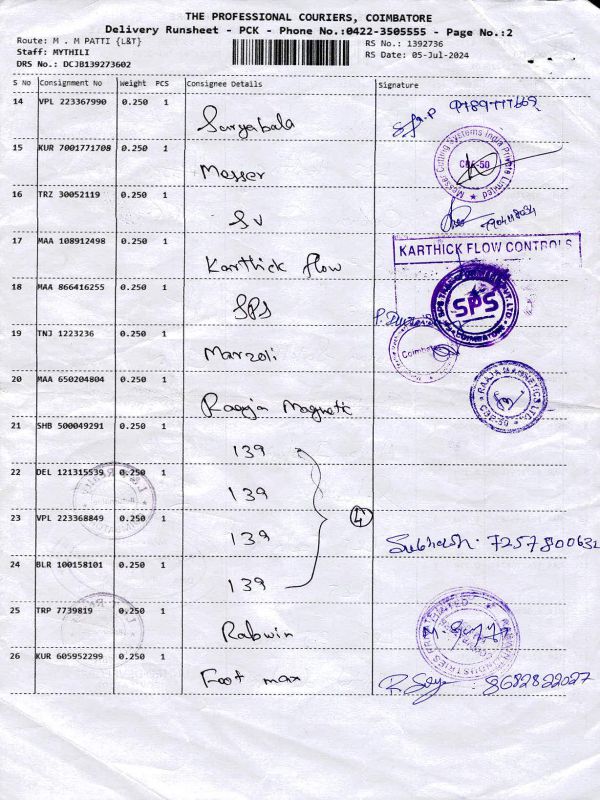 THE PROFESSIONAL COURIERS, COIMBATORE
Delivery Runsheet - PCK - Phone No.:0422-3505555 - Page No.:2
Route: M . M PATTI {L&T}
RS No.: 1392736
Staff: MYTHILI
RS Date: 05-Jul-2024
DRS No.: DCJB139273602
S No Consignment No Weight PCS Consignee Details Signature
14 VPL 223367990 0.250 1 Suryabala
15 KUR 7001771708 0.250 1 Messer
Messer Cutting Systems India Private Limited CBE-50
16 TRZ 30052119 0.250 1 SV
17 MAA 108912498 0.250 1 Karthick flow
KARTHICK FLOW CONTROLS
18 MAA 866416255 0.250 1 SPS
SPS COIMBATORE
19 TNJ 1223236 0.250 1 Marzoli
Coimbatore
20 MAA 650204804 0.250 1 Raaja Magnetic
RAAJA MAGNETICS LTD. CBE-50
21 SHB 500049291 0.250 1 139
22 DEL 121315539 0.250 1 139
23 VPL 223368849 0.250 1 139 4 Subhash. 7257800632
24 BLR 100158101 0.250 1 139
25 TRP 7739819 0.250 1 Rabwin
26 KUR 605952299 0.250 1 Foot max 8682822027